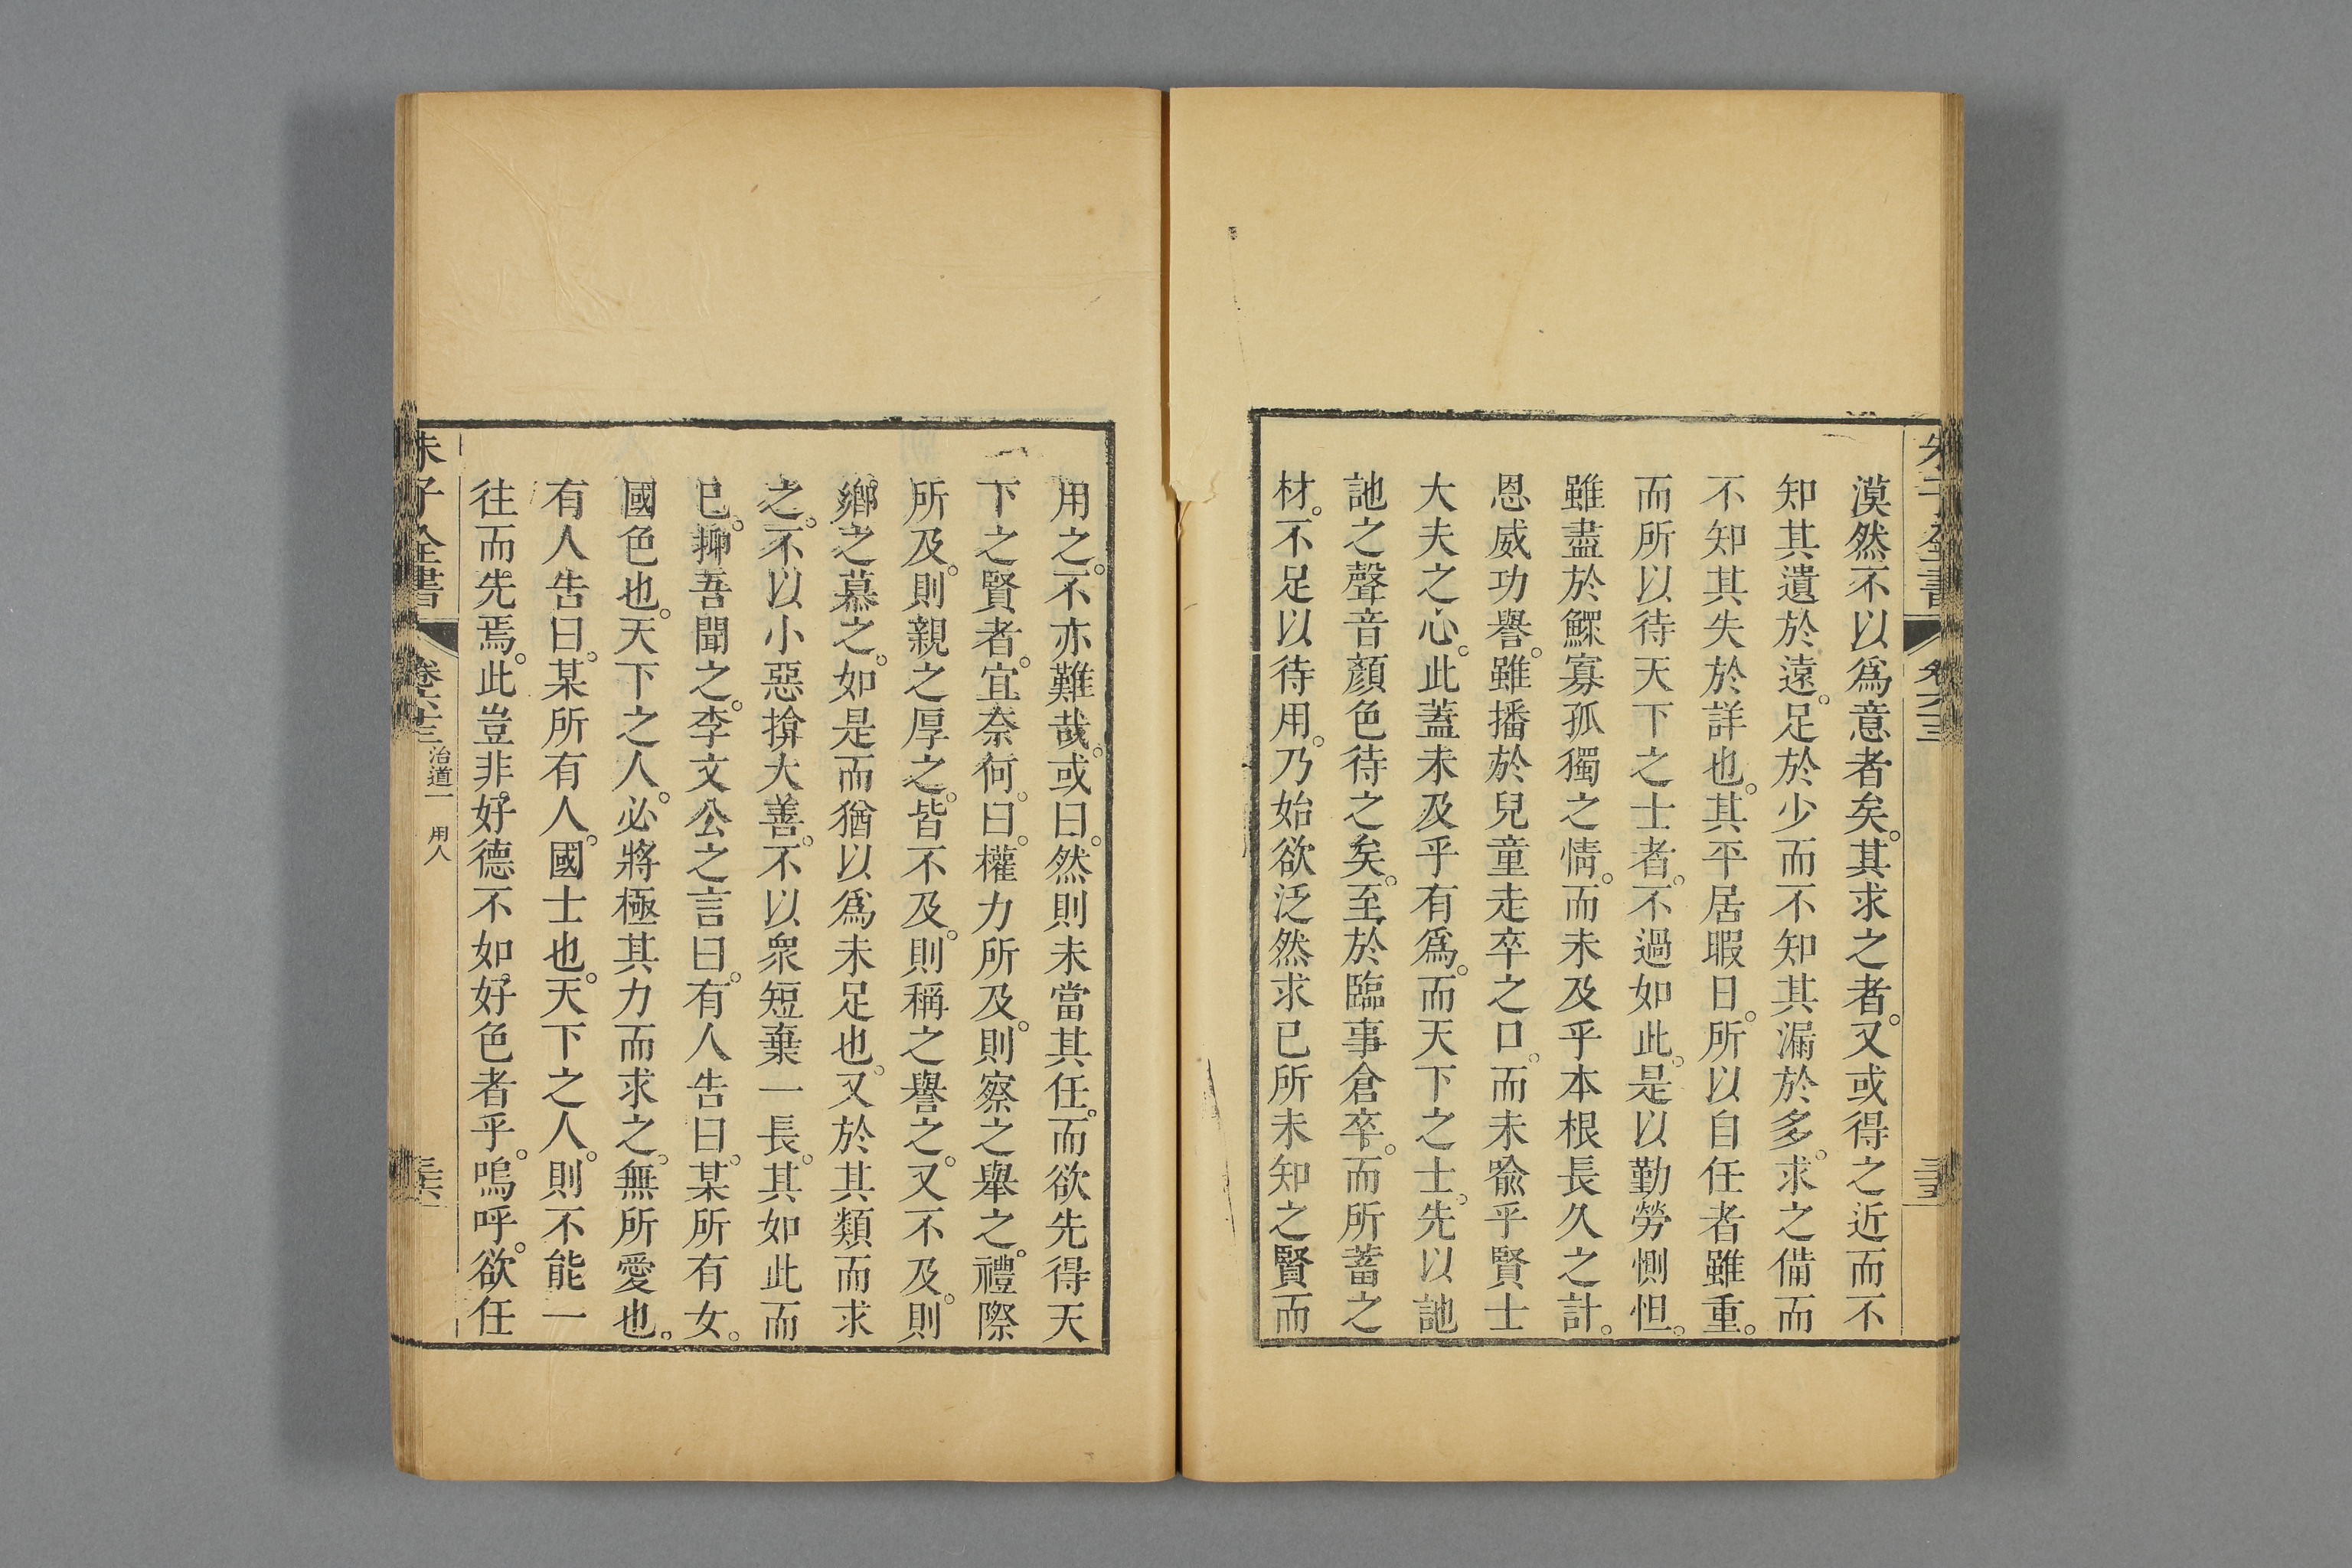 漠然不以爲意者矣。其求之者。又或得之近而不
知其遺於遠。足於少而不知其漏於多。求之備而
不知其失於詳也。其平居暇日。所以自任者雖重。
而所以待天下之士者。不過如此。是以勤勞惻怛。
雖盡於鰥寡孤獨之情。而未及乎本根長久之計。
恩威功譽。雖播於兒童走卒之口。而未喻乎賢士
大夫之心。此蓋未及乎有爲。而天下之士。先以訑
訑之聲音顏色待之矣。至於臨事倉卒。而所蓄之
材。不足以待用。乃始欲泛然求已所未知之賢而
用之。不亦難哉。或曰。然則未當其任。而欲先得天
下之賢者。宜奈何。曰。權力所及。則察之舉之。禮際
所及。則親之厚之。皆不及。則稱之譽之。又不及。則
鄉之慕之。如是而猶以爲未足也。又於其類而求
之。不以小惡揜大善。不以衆短棄一長。其如此而
已。抑吾聞之。李文公之言曰。有人告曰。某所有女。
國色也。天下之人。必將極其力而求之。無所愛也。
有人告曰。某所有人。國士也。天下之人。則不能一
往而先焉。此豈非好德不如好色者乎。嗚呼。欲任
朱子全書 卷六十三 治道一 用人